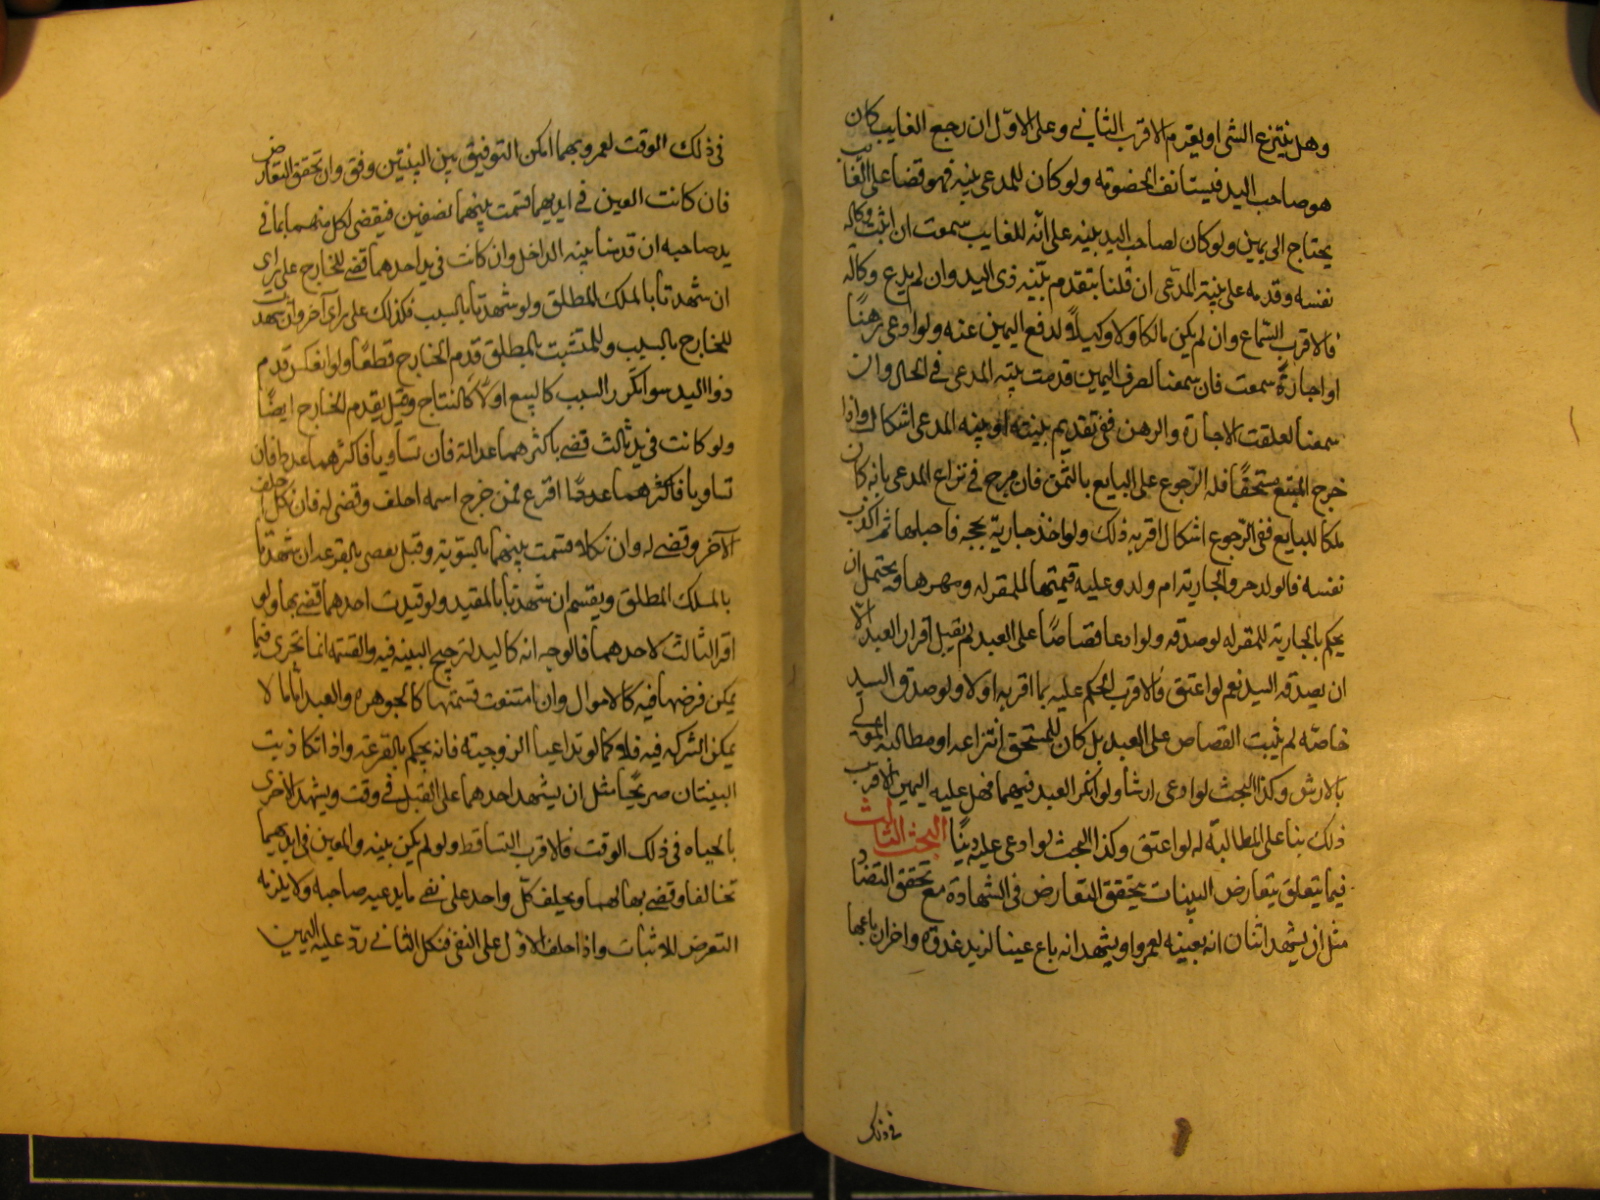 وهل ينتزع الشى او يغرم الاقرب الثانى وعلى الاول ان رجع الغايب كان
هو صاحب اليد فيستانف الخصومة ولو كان للمدعى بينه فهو قضا على الغايب
يحتاج الى يمين ولو كان لصاحب اليد بينه على انه للغايب سمعت ان اثبت وكاله
نفسه وقدمه على بينة المدعى ان قلنا بتقدم بينه ذى اليد وان لم يدع وكاله
فالاقرب السماع وان لم يكن مالكا ولا وكيلا لدفع اليمين عنه ولو ادعى رهنا
او اجارة سمعت فان سمعنا لصرف اليمين قدمت بينه المدعى فى الحال وان
سمعنا لعلقت الاجارة والرهن ففى تقديم بينته او بينه المدعى اشكال واذا
خرج المبيع مستحقا فله الرجوع على البايع بالثمن فان صرح فى نزاع المدعى بانه كان
ملكا للبايع ففى الرجوع اشكال اقربه ذلك ولو اخذ جارية بحجه فاحبلها ثم اكذب
نفسه فالولد حر والجارية ام ولد وعليه قيمتها للمقر له ومهرها ويحتمل ان
يحكم بالجارية للمقر له لو صدقه ولو ادعا قصاصا على العبد لم يقبل اقرار العبد الا
ان يصدقه السيد نعم لو اعتق فالاقرب الحكم عليه بما اقر به اولا ولو صدق السيد
خاصه لم يثبت القصاص على العبد بل كان للمستحق انتزاعه او مطالبة المولى
بالارش وكذا البحث لو ادعى ارشا ولو انكر العبد فيهما فهل عليه اليمين الاقرب
ذلك بنا على المطالبة له لو اعتق وكذا البحث لو ادعى عليه دينا البحث الثالث
فيما يتعلق بتعارض البينات يتحقق التعارض فى الشهادة مع تحقق التضاد
مثل ان يشهد اثنان انه بعينه لعمرو او يشهد انه باع عينا لزيد غدوة واخران باعها
فى ذلك
فى ذلك الوقت لعمرو ومهما امكن التوفيق بين البينتين وفق وان تحقق التعارض
فان كانت العين فى ايديهما قسمت بينهما نصفين فيقضى لكل منهما بما فى
يد صاحبه ان قدمنا بينه الداخل وان كانت فى يد احدهما قضى للخارج على راى
ان شهدتا بالملك المطلق ولو شهدتا بالسبب فكذلك على راى آخر وان شهدت
للخارج بالسبب وللمتشبث بالمطلق قدم الخارج قطعا ولو انعكس قدم
ذوا اليد سوا تكرر السبب كالبيع اولا كالنتاج وقيل يقدم الخارج ايضا
ولو كانت فى يد ثالث قضى باكثرهما عدالة فان تساويا فاكثرهما عددا فان
تساويا فاكثرهما عددا اقرع فمن خرج اسمه احلف وقضى له فان نكل احلف
الآخر وقضى له وان نكلا قسمت بينهما بالسوية وقيل يقضى بالقرعه ان شهدتا
بالملك المطلق ويقسم ان شهدتا بالمقيد ولو قيدت احدهما قضى بها ولو
اقر الثالث لاحدهما فالوجه انه كاليد لترجيح البينه فيه والقسمه انما تجرى فيما
يمكن فرضها فيه كالاموال وان امتنعت قسمتها كالجوهرة والعبد اما ما لا
يمكن الشركه فيه فلا كما لو تداعيا الزوجية فانه يحكم بالقرعة واذا تكاذبت
البينتان صريحا مثل ان يشهد احدهما على القتل فى وقت ويشهد الاخرى
بالحياه فى ذلك الوقت فالاقرب التساقط ولو لم يكن بينه والعين فى ايديهما
تحالفا وقضى بها لهما ويحلف كل واحد على نفى ما يدعيه صاحبه ولا يلزمه
التعرض للاثبات واذا حلف الاول على النفى فنكل الثانى رد عليه اليمين